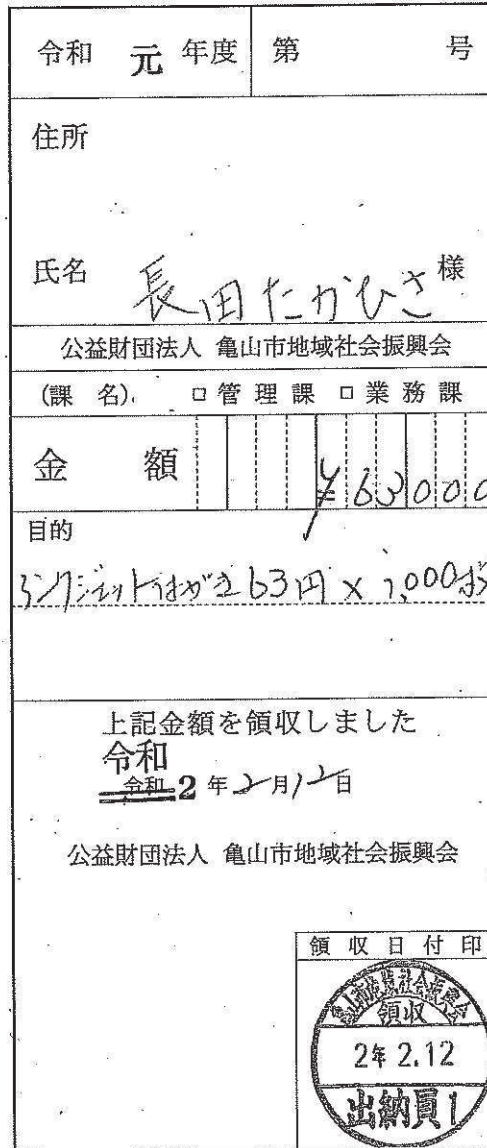 令和 元 年度 第 号
住所
氏名 長田たかひさ 様
公益財団法人 亀山市地域社会振興会
(課 名) □管理課 □業務課
金 額 ¥63000
目的
インクジェットはがき63円×1,000枚
上記金額を領収しました
令和
令和 2 年 2月12日
公益財団法人 亀山市地域社会振興会
領収日付印
亀山市地域社会振興会
領収
2年 2.12
出納員1